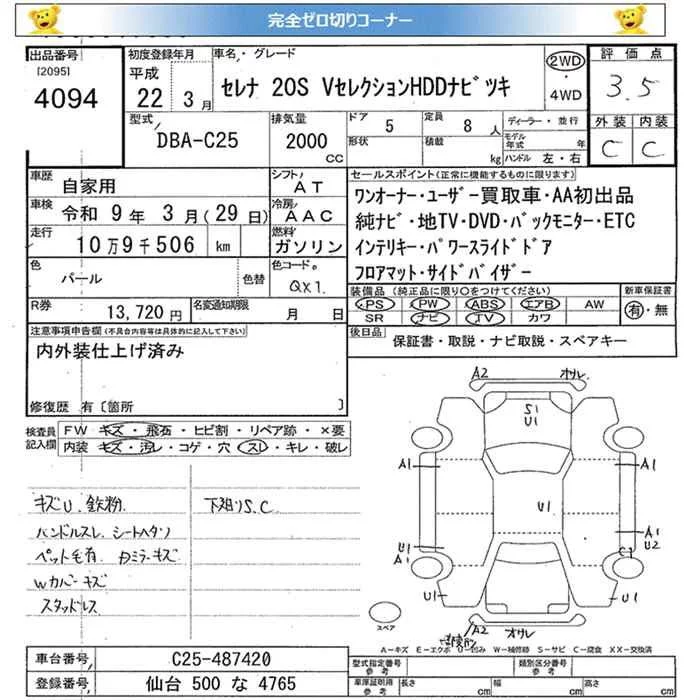 完全ゼロ切りコーナー
出品番号
[2095]
4094
初度登録年月
平成
22 3月
車名・グレード
セレナ 20S VセレクションHDDナビツキ
2WD・4WD
評価点
3.5
外装 内装
C C
型式
DBA-C25
排気量
2000 cc
ドア 5
形状
定員 8 人
積載 kg
ディーラー・並行
モデル年式 年
ハンドル 左・右
車歴
自家用
シフト
AT
車検 令和 9年 3月(29日)
冷房
AAC
走行 10万9千506 km
燃料
ガソリン
色 パール
色替
色コード
QX1
R券 13,720円
名変通知期限
月 日
セールスポイント(正常に機能するものに限ります)
ワンオーナー・ユーザー買取車・AA初出品
純ナビ・地TV・DVD・バックモニター・ETC
インテリキー・パワースライドドア
フロアマット・サイドバイザー
装備品 (純正品に限り○をつけてください)
新車保証書
PS PW ABS エアB AW
有・無
SR ナビ TV カワ
後日品
保証書・取説・ナビ取説・スペアキー
注意事項申告欄(不具合内容等は具体的に記入して下さい)
内外装仕上げ済み
修復歴 有〔箇所 〕
検査員記入欄
FW キズ・飛石・ヒビ割・リペア跡・×要
内装 キズ・汚レ・コゲ・穴・スレ・キレ・破レ
キズU.鉄粉
下廻りS.C
ハンドルスレ シートヘタリ
ペット毛有 Dミラーキズ
Wカバーキズ
スタッドレス
A2 オサレ
S1
U1
A1 A1
U1
U1 A1
A1 U2
C1
U1 U1
A2 オサレ
スペア
A－キズ E－エクボ U－凹み W－補修跡 S－サビ C－腐食 XX－交換済
車台番号 C25-487420
登録番号 仙台 500 な 4765
型式指定番号 参考
類別区分番号 参考
車庫証明用 参考
長さ cm
幅 cm
高さ cm